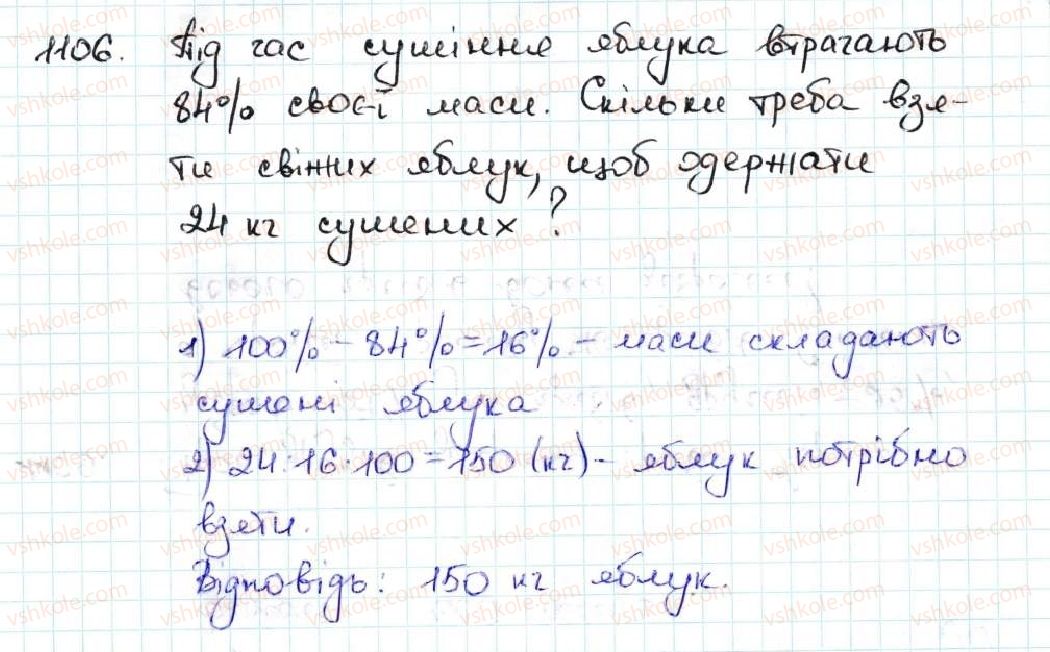 1106. Під час сушіння яблука втрачають
84% своєї маси. Скільки треба взя-
ти свіжих яблук, щоб одержати
24 кг сушених?
1) 100% - 84% = 16% - маси складають
сушені яблука
2) 24:16·100=150 (кг) - яблук потрібно
взяти.
Відповідь: 150 кг яблук.